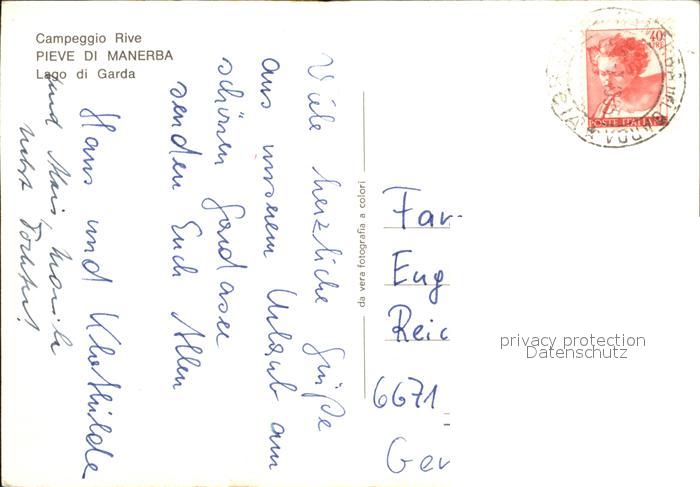 Campeggio Rive
PIEVE DI MANERBA
Lago di Garda
Viele herzliche Grüße
aus unserem Urlaub am
schönen Gardasee
senden Euch Allen
Hans und Klothilde
und
nebst Tochter!
da vera fotografia a colori
40
LIRE
POSTE ITALIANE
Far-
Eug
Reic
6671
Ger
privacy protection
Datenschutz